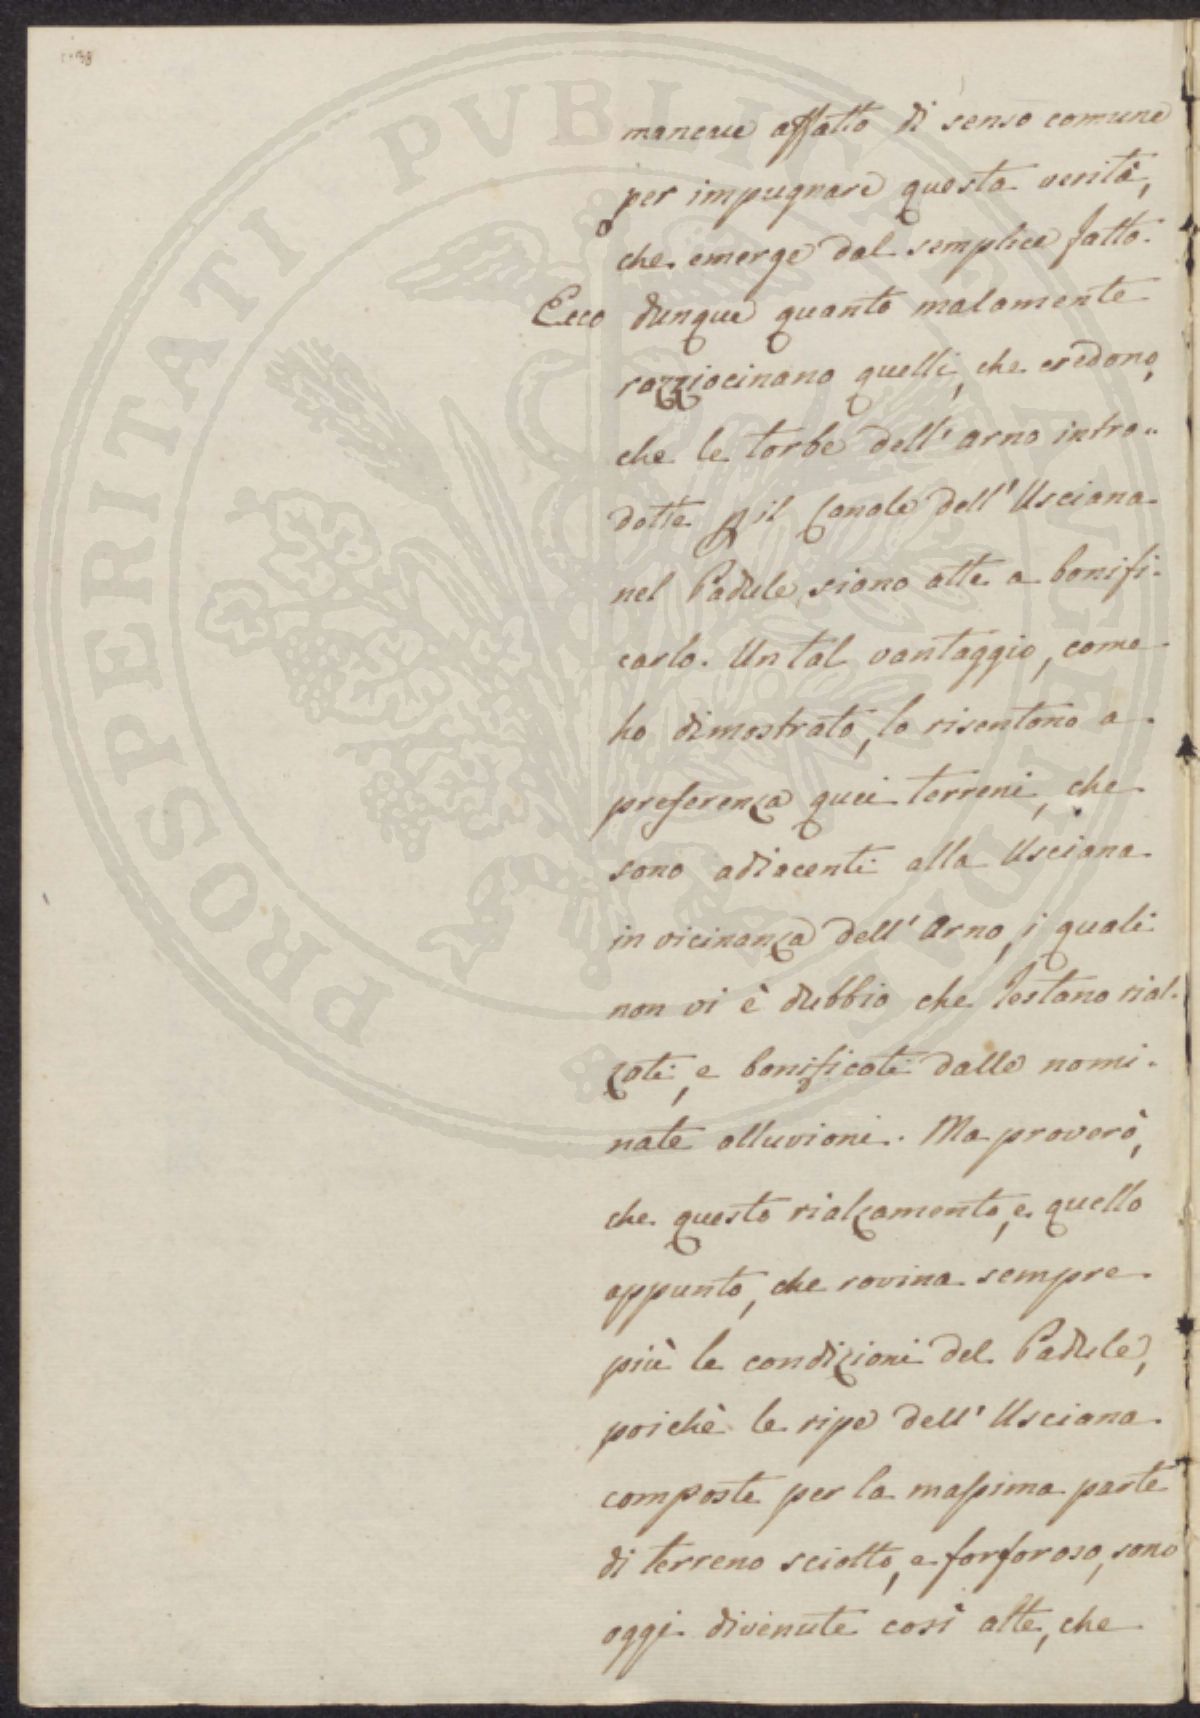 PROSPERITATI PVBLICAE AVGENDAE
mancare affatto di senso comune
per impugnare questa verità,
che emerge dal semplice fatto.
Ecco dunque quanto malamente
razziocinano quelli, che credono,
che le torbe dell' Arno intro„
dotte p il Canale dell' Usciana
nel Padule, siano atte a bonifi-
carlo. Un tal vantaggio, come
ho dimostrato, lo risentono a
preferenza quei terreni, che
sono adiacenti alla Usciana
in vicinanza dell' Arno, i quali
non vi è dubbio che restano rial-
zati, e bonificati dalle nomi-
nate alluvioni. Ma proverò,
che questo rialzamento, e quello
appunto, che rovina sempre
più le condizioni del Padule,
poichè le ripe dell' Usciana
composte per la massima parte
di terreno sciolto, e forforoso, sono
oggi divenute così alte, che